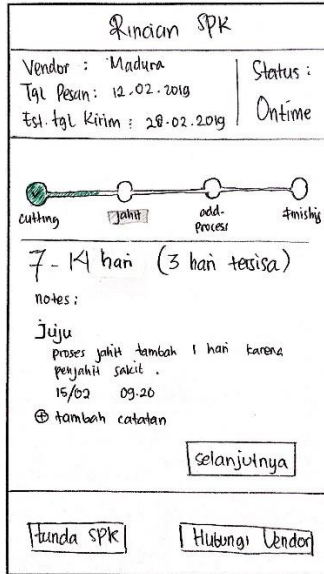 Rincian SPK
Vendor : Madura
Tgl Pesan : 12.02.2019
Est. tgl Kirim : 28.02.2019
Status :
Ontime
cutting
jahit
add-process
finishing
7 - 14 hari (3 hari tersisa)
notes :
Juju
proses jahit tambah 1 hari karena
penjahit sakit .
15/02 09.20
⊕ tambah catatan
selanjutnya
tunda SPK
Hubungi Vendor